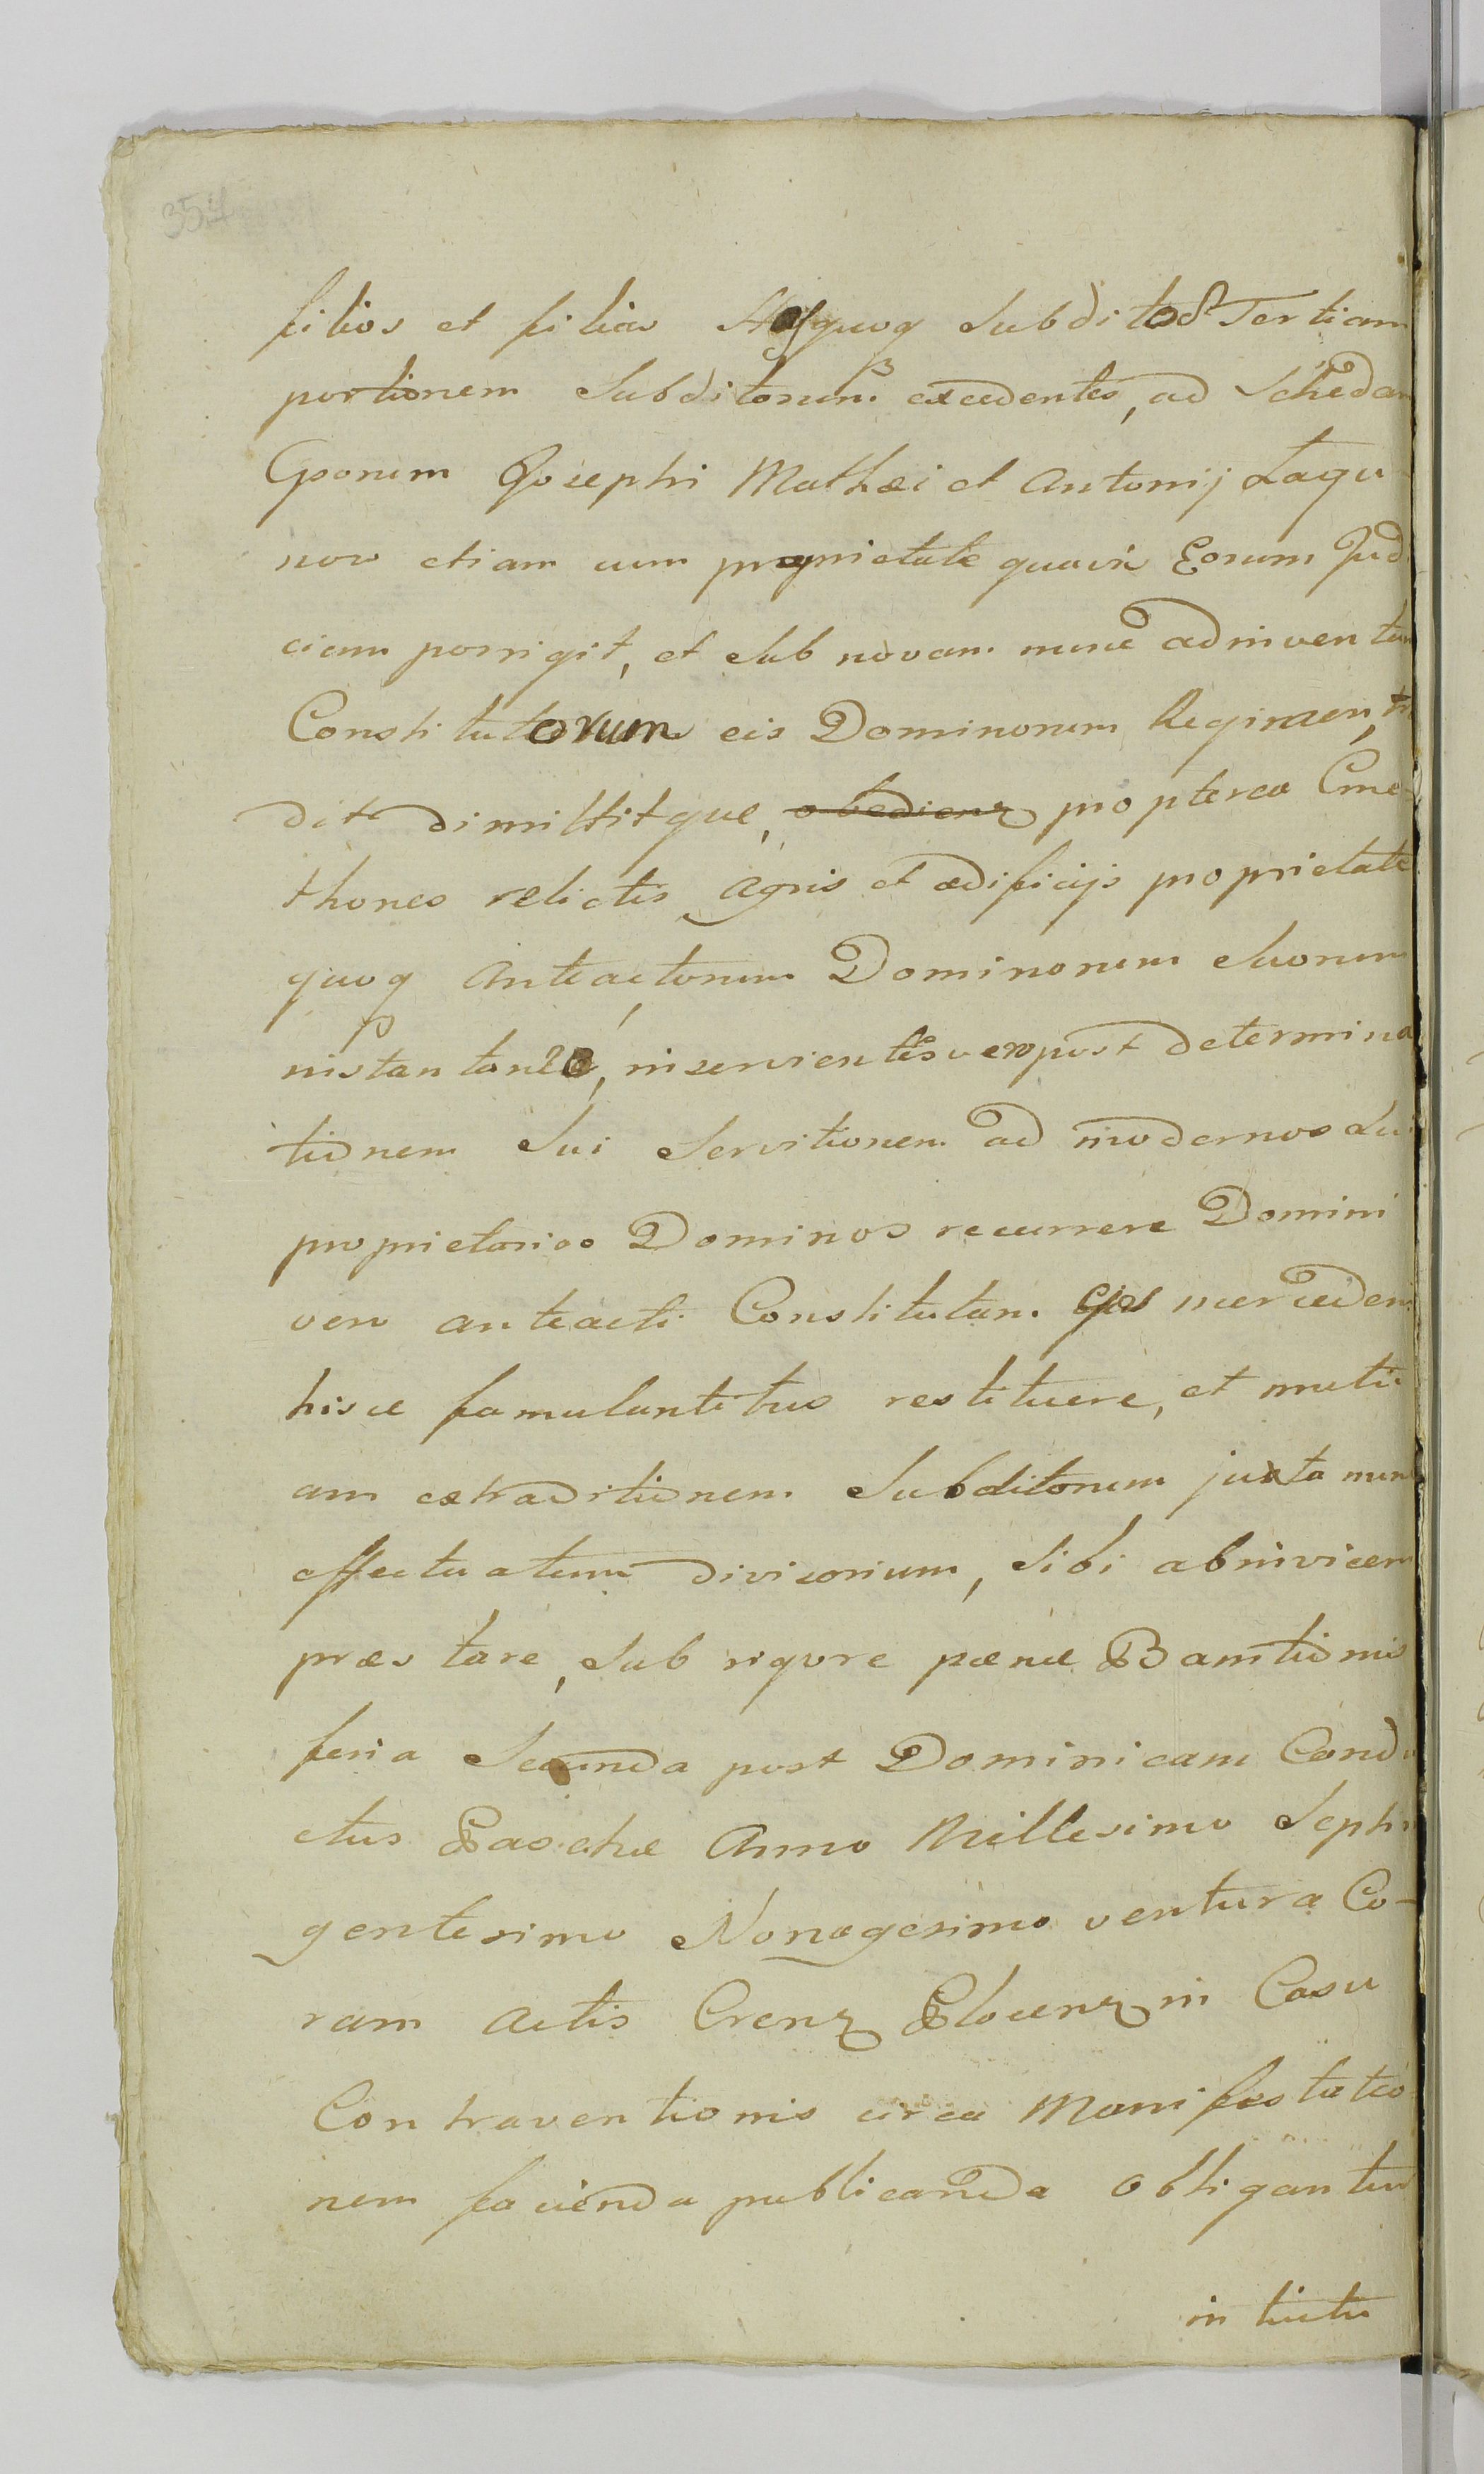 354
filios et filias Hosquoq Subditos Tertiam
portionem Subditorum excedentes, ad Schedam
Gsorum Josephi Mathæi et Antonij Lagu
now etiam cum proprietate quavis Eorum Judi
cium porrigit, et sub novam nunc adinventam
Constitutorum eis Dominorum Regimen, tra
dit dimittitque, propterea Cme
thones relictis Agris et ædificijs proprietate
quoq Anteactorum Dominorum Suorum
instantanee, inservientes vero post determina
tionem Sui Servitionem ad modernos Sui
proprietarios Dominos recurrere Domini
vero anteacti Constitutam mercedem
hisce famulantibus restituere, et mutu
am extraditionem Subditorum juxta nunc
effectuatum divisorium, sibi abinvicem
præstare, sub rigore pœnæ Bannitionis
feria Secunda post Dominicam Condu
ctus Paschæ Anno Millesimo Septin
gentesimo Nonagesimo ventura Co-
ram Actis Crenz Plocenz in Casu
Contraventionis circa Manifestatio
nem facienda publicanda Obligantur
in tuitu